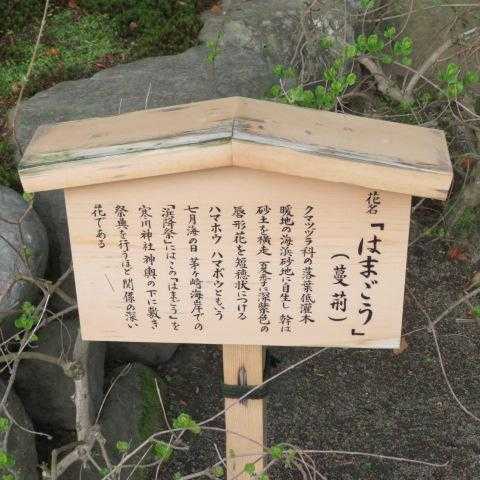 花名
「はまごう」
(蔓荊)
クマツヅラ科の落葉低灌木
暖地の海浜砂地に自生し 幹は
砂土を横走 夏季に深紫色の
唇形花を短穂状につける
ハマホウ ハマボウともいう
七月海の日 茅ヶ崎海岸での
「浜降祭」にはこの「はまごう」を
寒川神社 神輿の下に敷き
祭典を行うほど 関係の深い
花である